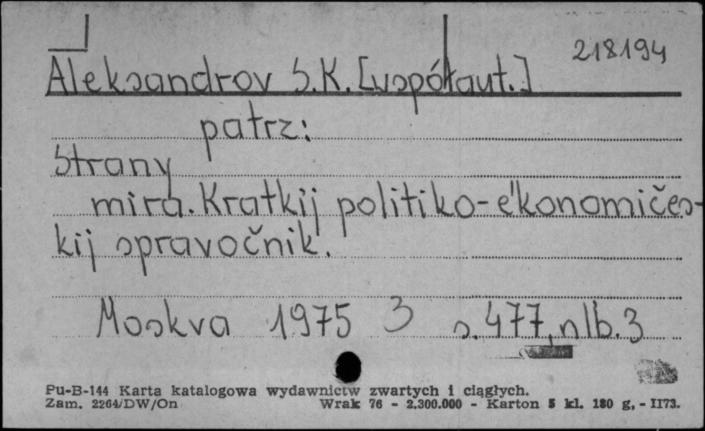 218194
Aleksandrov S.K. [współaut.]
patrz:
Strany
mira. Kratkij politiko-ėkonomičes-
kij spravočnik.
Moskva 1975 3 s. 477, nlb. 3
Pu-B-144 Karta katalogowa wydawnictw zwartych i ciągłych.
Zam. 2264/DW/On Wrak 76 - 2.300.000 - Karton 5 kl. 180 g. - II73.